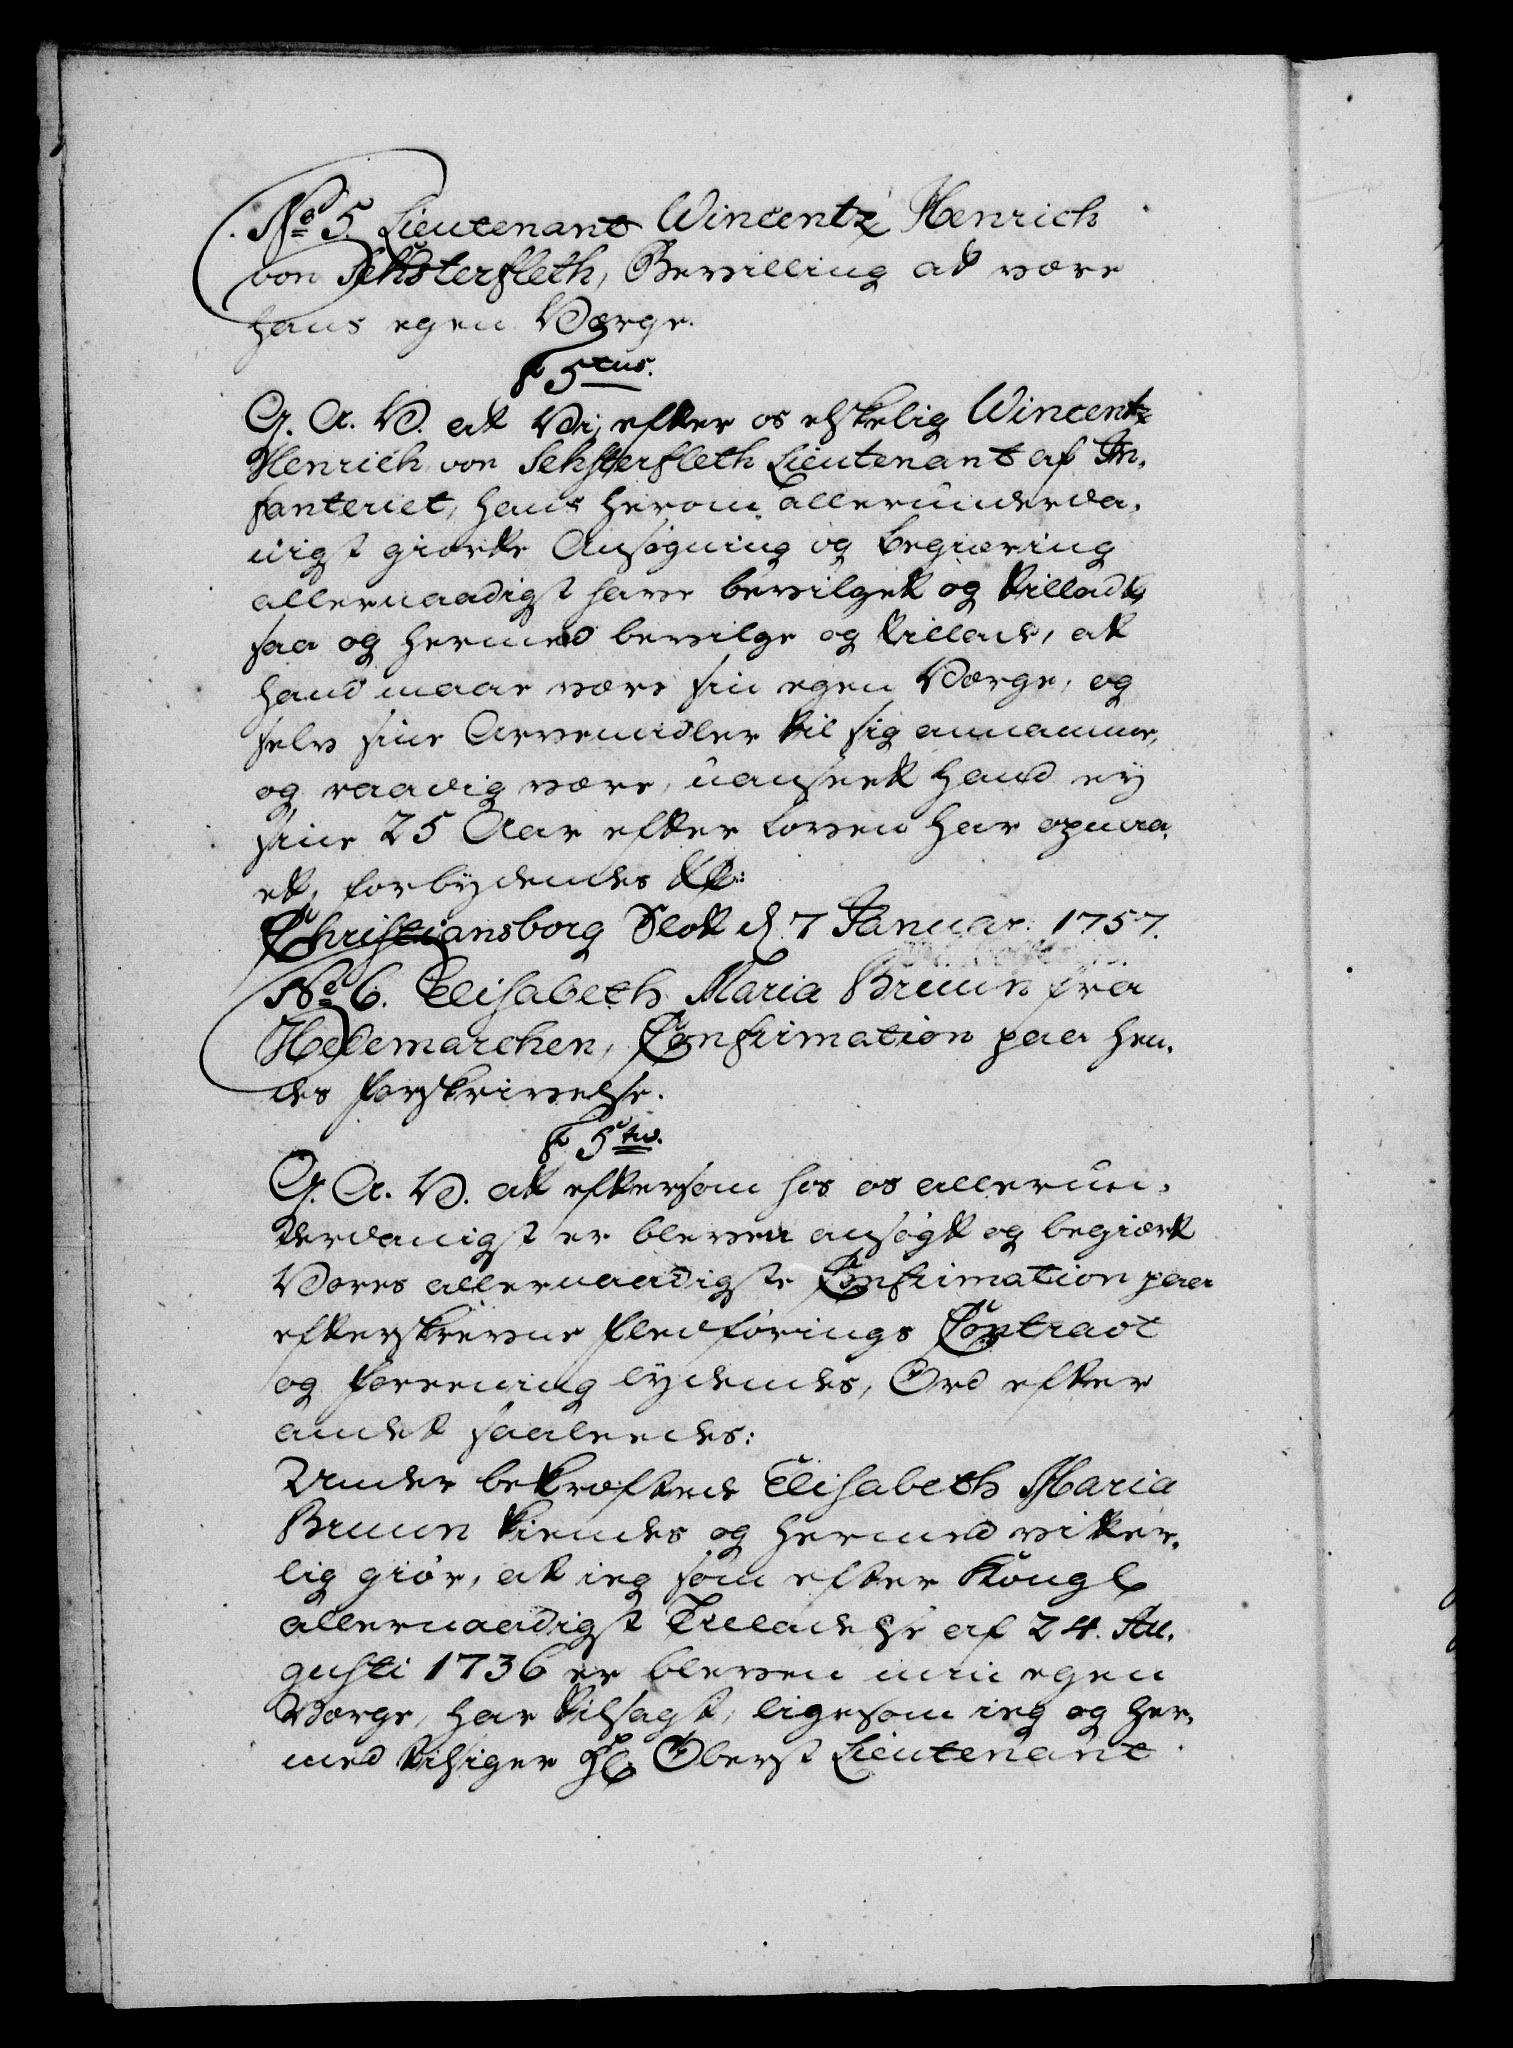 No 5 Lieutenant Wincentz Henrich
von Sehsterfleth, Bevilling at være
hans egen Værge.
F 5tus.
G. A. V. at Vi, efter os elskelig Wincentz
Henrich von Sehsterfleth Lieutenant af In,
fanteriet, hans herom allerunderda,
nigst giorte Ansøgning og begiæring
allernaadigst have bevilget og tilladt,
saa og hermed bevilge og tillade, at
hand maae være sin egen Værge, og
selv sine Arvemidler til sig annamme,
og raadig være, uanseet hand ey
sine 25 Aar efter Loven har opnaa,
et, forbydendes
Christiansborg Slot d. 7 Januar: 1757.
No 6. Elisabeth Maria Bruun fra
Hedemarchen, Confirmation paa hen,
des forskrivelse.
F 5tus.
G. A. V. at eftersom hos os allerun,
derdanigst er bleven ansøgt og begiært
Vores allernaadigste Confirmation paa
efterskrevne fledførings Contract
og foreening lydendes, Ord efter
andet saaleedes:
Under bekræftede Elisabeth Maria
Bruun kiendes og hermed vitter,
lig giør, at ieg som efter Kongl
allernaadigst Tilladelse af 24. Au,
gusti 1736 er bleven min egen
Værge, har tilsagt, ligesom ieg og her,
med tilsiger Hr Oberst Lieutenant